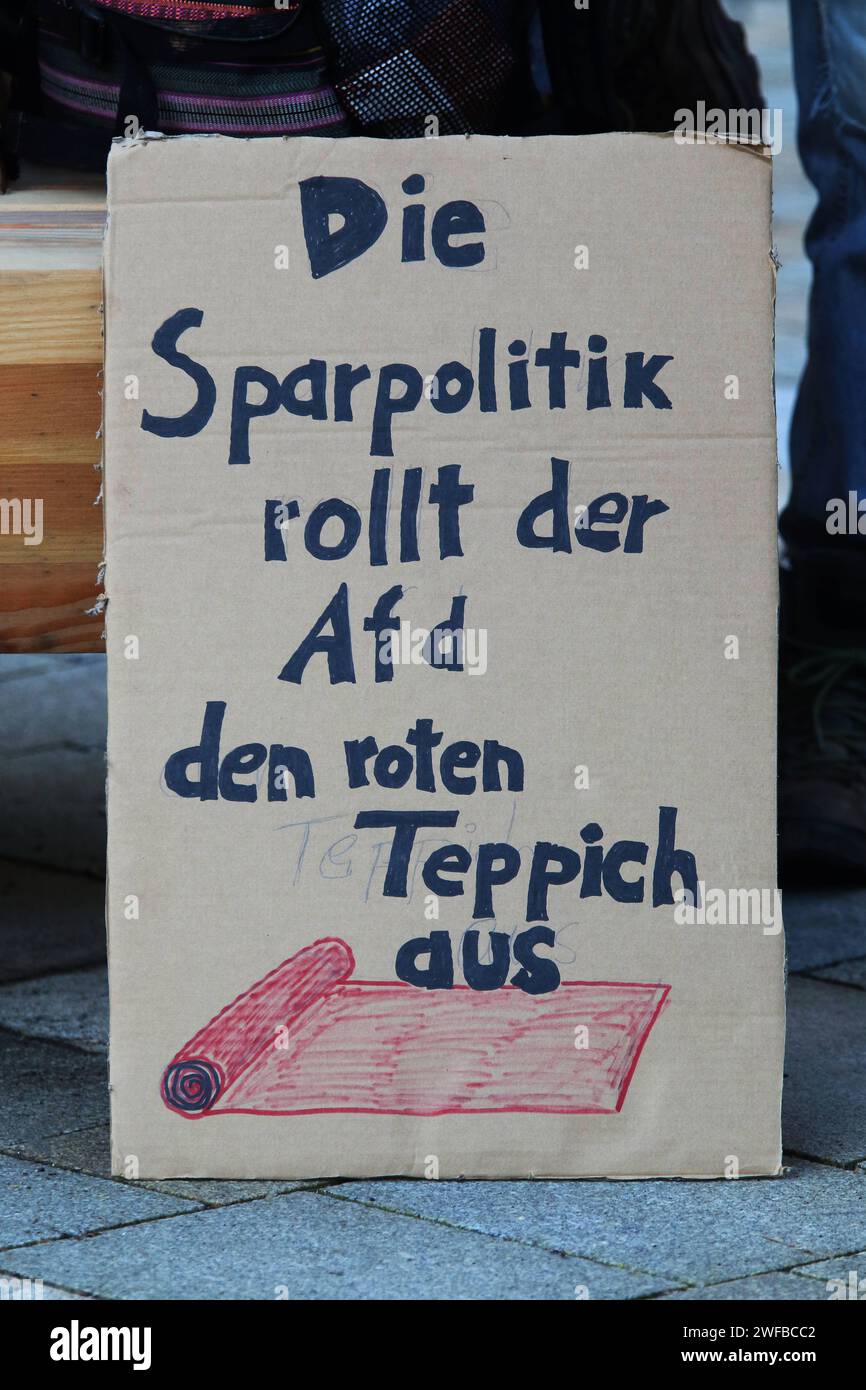 Die
Sparpolitik
rollt der
Afd
den roten
Teppich
aus
alamy
Image ID: 2WFBCC2
www.alamy.com